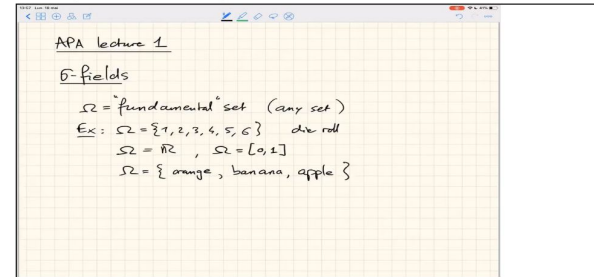 13:57 Lun 16 mar
41%
APA lecture 1
σ-fields
Ω = "fundamental" set (any set)
Ex: Ω = {1, 2, 3, 4, 5, 6} die roll
Ω = ℝ , Ω = [0, 1]
Ω = { orange, banana, apple }